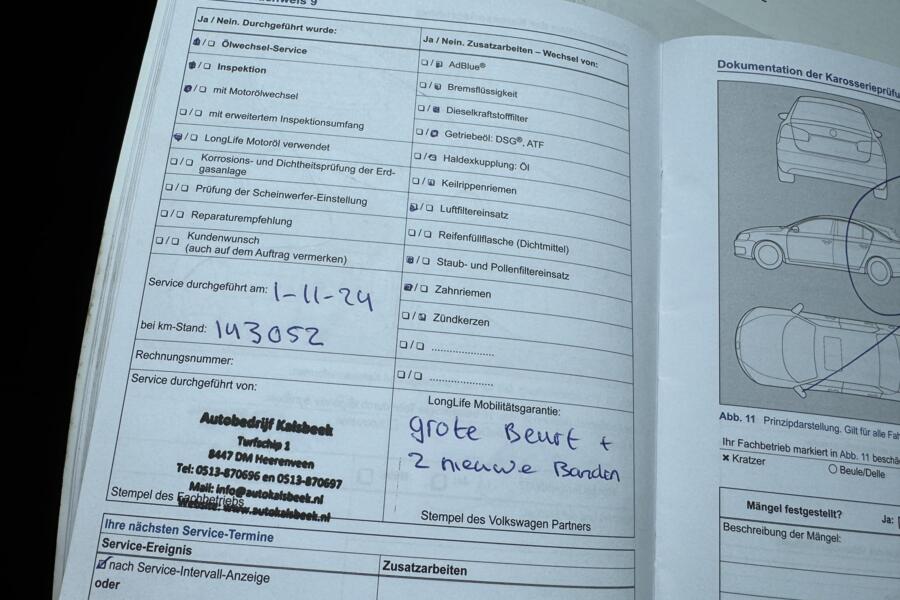 9
Ja / Nein. Durchgeführt wurde:
/ Ölwechsel-Service
/ Inspektion
/ mit Motorölwechsel
/ mit erweitertem Inspektionsumfang
/ LongLife Motoröl verwendet
/ Korrosions- und Dichtheitsprüfung der Erd-
gasanlage
/ Prüfung der Scheinwerfer-Einstellung
/ Reparaturempfehlung
/ Kundenwunsch
(auch auf dem Auftrag vermerken)
Service durchgeführt am: 1-11-24
bei km-Stand: 143052
Rechnungsnummer:
Service durchgeführt von:
Autobedrijf Kalsbeek
Turfschip 1
8447 DM Heerenveen
Tel: 0513-870696 en 0513-870697
Mail: info@autokalsbeek.nl
Website: www.autokalsbeek.nl
Stempel des Fachbetriebs
Ja / Nein. Zusatzarbeiten – Wechsel von:
/ AdBlue®
/ Bremsflüssigkeit
/ Dieselkraftstofffilter
/ Getriebeöl: DSG®, ATF
/ Haldexkupplung: Öl
/ Keilrippenriemen
/ Luftfiltereinsatz
/ Reifenfüllflasche (Dichtmittel)
/ Staub- und Pollenfiltereinsatz
/ Zahnriemen
/ Zündkerzen
/ .....................
/ .....................
LongLife Mobilitätsgarantie:
grote Beurt +
2 nieuwe Banden
Stempel des Volkswagen Partners
Ihre nächsten Service-Termine
Service-Ereignis
nach Service-Intervall-Anzeige
oder
Zusatzarbeiten
Dokumentation der
Abb. 11 Prinzipdarstellung. Gilt für alle
Ihr Fachbetrieb markiert in Abb. 11
× Kratzer
Beule/Delle
Mängel festgestellt?
Ja:
Beschreibung der Mängel: